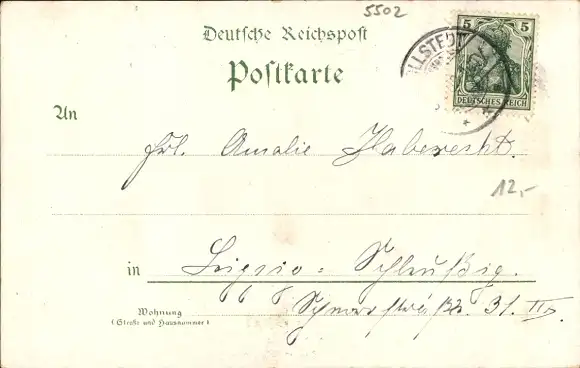 5502
Deutsche Reichspost
Postkarte
5 5
DEUTSCHES REICH
An
Frl. Amalie Haberecht.
12,-
in Leipzig = Schleußig.
Wohnung
(Straße und Hausnummer)
31. II